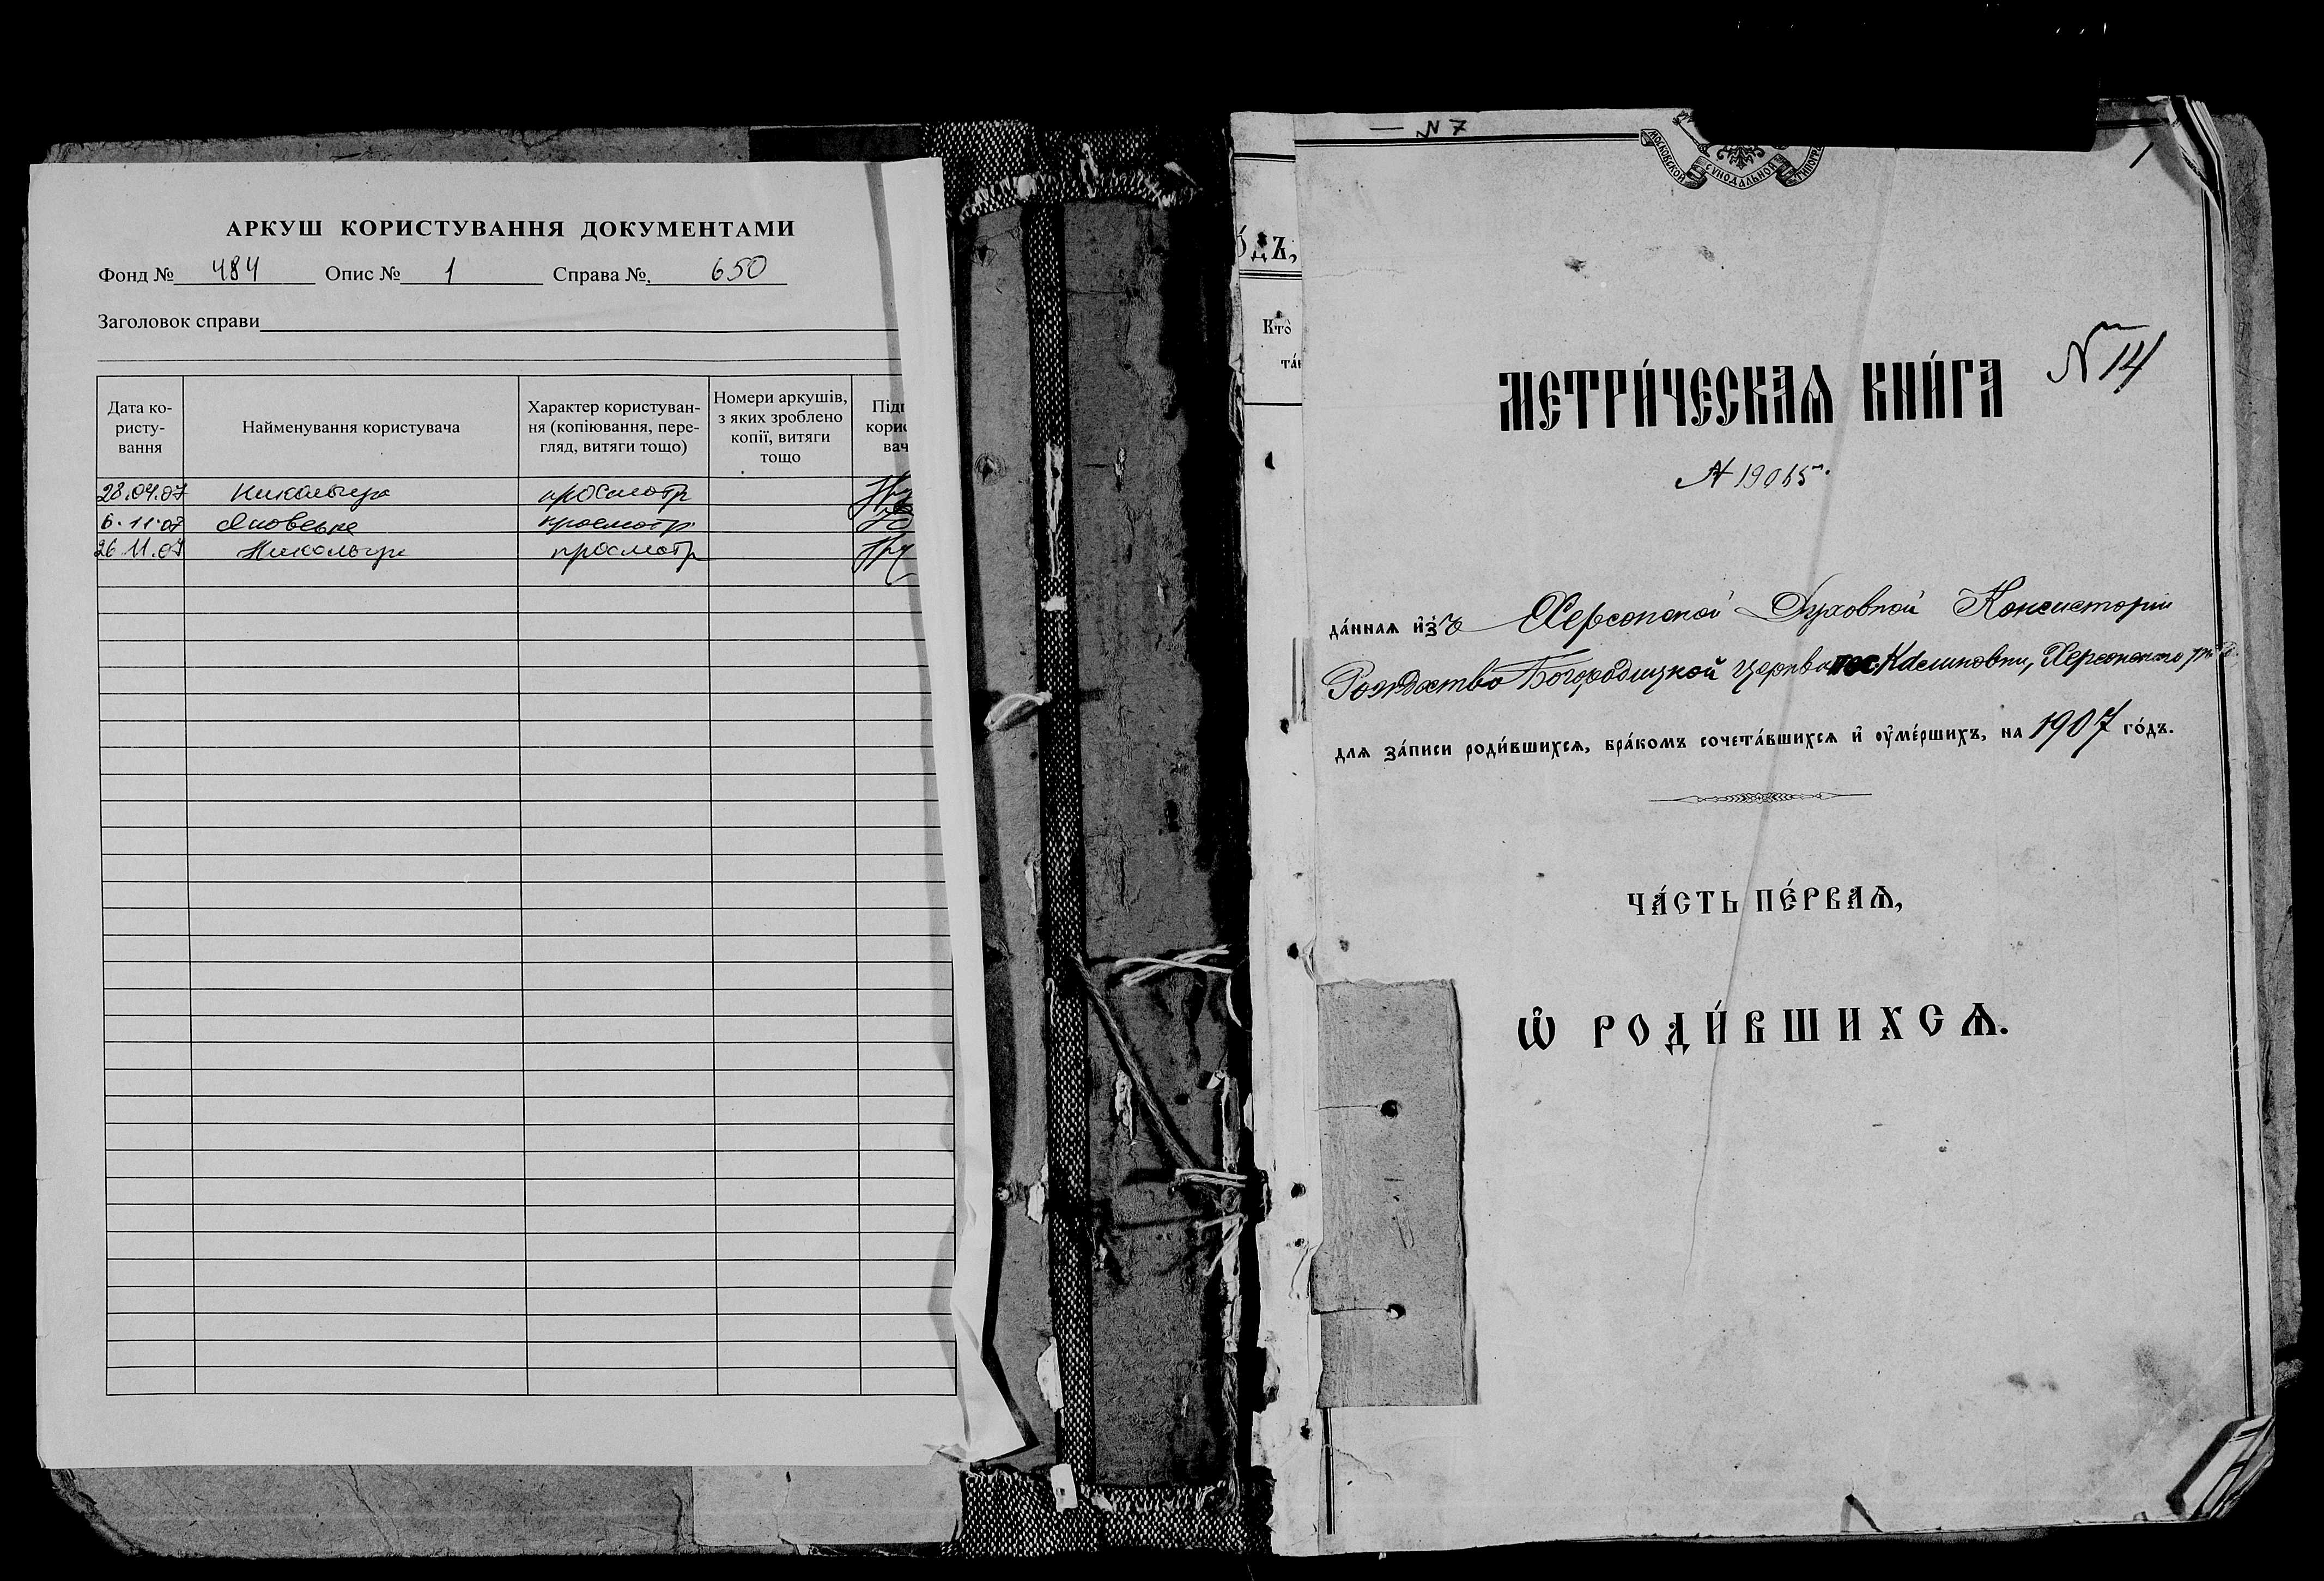 АРКУШ КОРИСТУВАННЯ ДОКУМЕНТАМИ
Фонд № 484 Опис № 1 Справа № 650
Заголовок справи
Дата ко-
ристу-
вання
Найменування користувача
Характер користуван-
ня (копіювання, пере-
гляд, витяги тощо)
Номери аркушів,
з яких зроблено
копії, витяги
тощо
Підп
корис
вач
28.04.07 просмотр
6.11.07 просмотр
26.11.07 просмотр
— N 7
МОСКОВСКОЙ СѴНОДАЛЬНОЙ ТИПОГРА
1
о́дъ,
Кто̀
та́н
МЕТРИ́ЧЕСКАѦ КНИ́ГА
N 14
N 19015
да́ннаѧ и҆зъ Херсонской Духовной Консисторіи
Рождество Богородицкой церкви пос. Калиновки, Херсонскаго
длѧ за́писи роди́вшихсѧ, бра́комъ сочета́вшихсѧ и҆ ᲂу҆ме́ршихъ, на 1907 го́дъ.
ЧА́СТЬ ПЕ́РВАѦ,
Ѽ РОДИ́ВШИХСѦ.